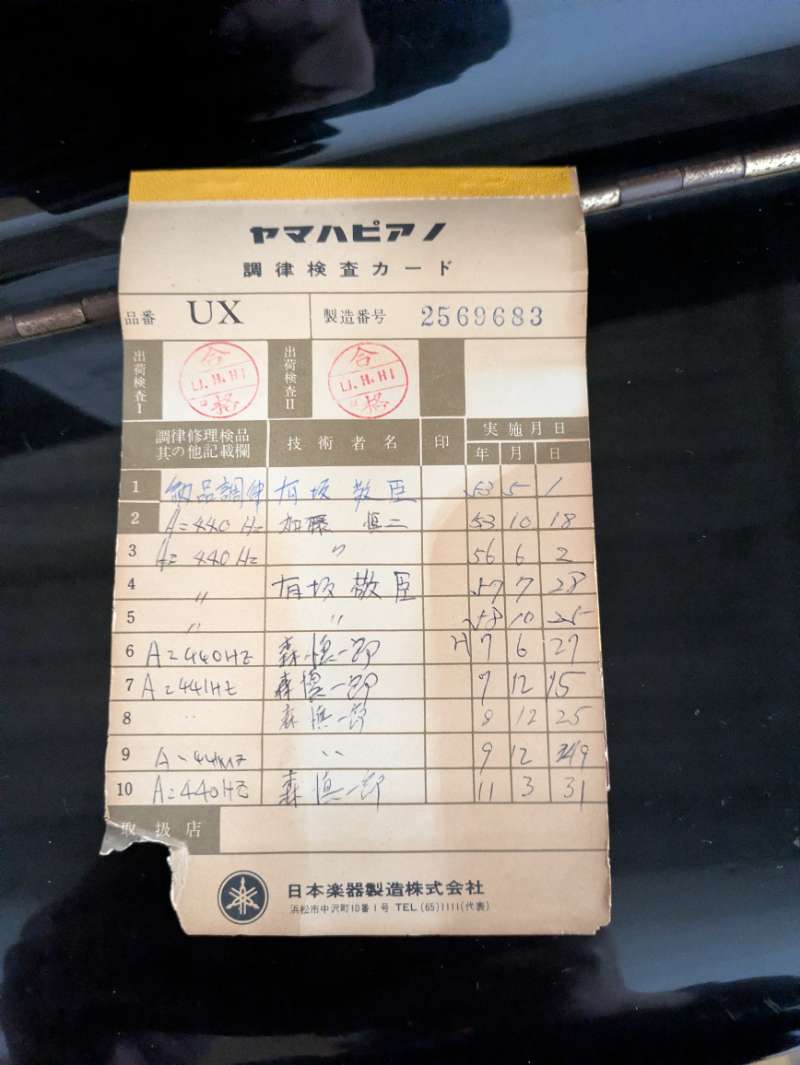 ヤマハピアノ
調律検査カード
品番 UX 製造番号 2569683
出荷検査I 合格 出荷検査II 合格
調律修理検品其の他記載欄 技術者名 印 実施月日
年 月 日
1 納品調律 有坂敬臣 53 5 1
2 A=440Hz 加藤慎二 53 10 18
3 A=440Hz 〃 56 6 2
4 〃 有坂敬臣 57 7 28
5 〃 〃 58 10 25
6 A=440HZ 森慎一郎 H7 6 27
7 A=441HZ 森慎一郎 7 12 15
8 〃 森慎一郎 12 25
9 〃 9 12
10 A=440HZ 森慎一郎 11 3 31
取扱店
日本楽器製造株式会社
浜松市中沢町10番1号 TEL(65)1111(代表)